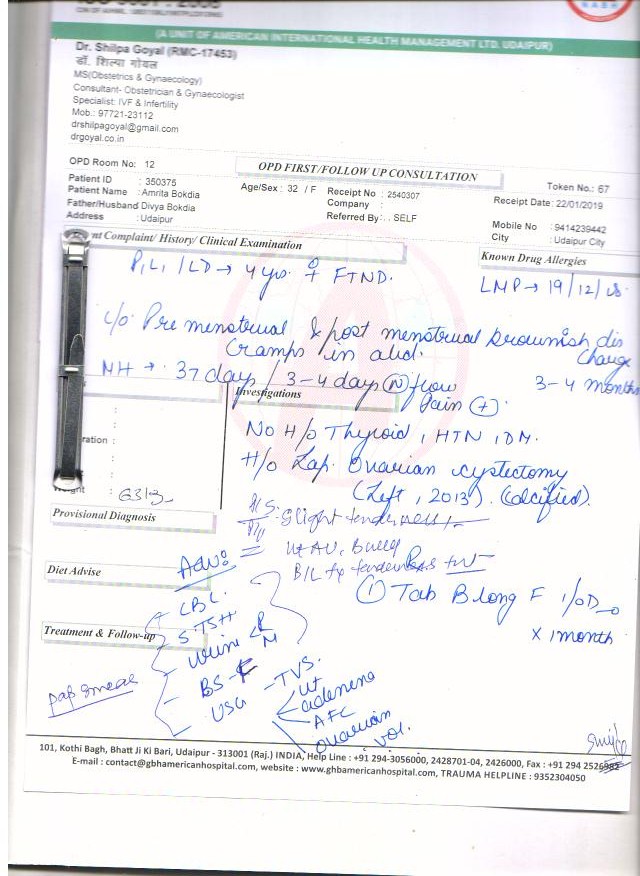 (A UNIT OF AMERICAN INTERNATIONAL HEALTH MANAGEMENT LTD. UDAIPUR)
Dr. Shilpa Goyal (RMC-17453)
डॉ. शिल्पा गोयल
MS(Obstetrics & Gynaecology)
Consultant- Obstetrician & Gynaecologist
Specialist: IVF & Infertility
Mob.: 97721-23112
drshilpagoyal@gmail.com
drgoyal.co.in
OPD Room No: 12
OPD FIRST/FOLLOW UP CONSULTATION
Token No.: 67
Patient ID : 350375
Age/Sex : 32 / F
Receipt No : 2540307
Receipt Date: 22/01/2019
Patient Name : Amrita Bokdia
Company :
Father/Husband Divya Bokdia
Referred By: . SELF
Mobile No : 9414239442
Address : Udaipur
City : Udaipur City
nt Complaint/ History/ Clinical Examination
Known Drug Allergies
P1L1 / LD → 4 yrs. ♀ FTND.
LMP → 19/12/18
c/o Pre menstrual & post menstrual brownish discharge
cramps in abd.
3-4 months
MH → 37 days / 3-4 days (N) flow
Pain (+)
Investigations
No H/o Thyroid, HTN, DM.
ration :
H/o Lap. Ovarian cystectomy
(Left, 2013). (calcified).
Provisional Diagnosis
slight tenderness +
Ut AV, Bulky
Advo
B/L fx tenderness
Diet Advise
① Tab B long F 1/OD
x 1 month
CBC
S. TSH
Treatment & Follow-up
Urine R M
BS-F
pap smear
USG - TVS.
Ut
adenexa
AFC
ovarian
vol.
101, Kothi Bagh, Bhatt Ji Ki Bari, Udaipur - 313001 (Raj.) INDIA, Help Line : +91 294-3056000, 2428701-04, 2426000, Fax : +91 294 2526982
E-mail : contact@gbhamericanhospital.com, website : www.gbhamericanhospital.com, TRAUMA HELPLINE : 9352304050